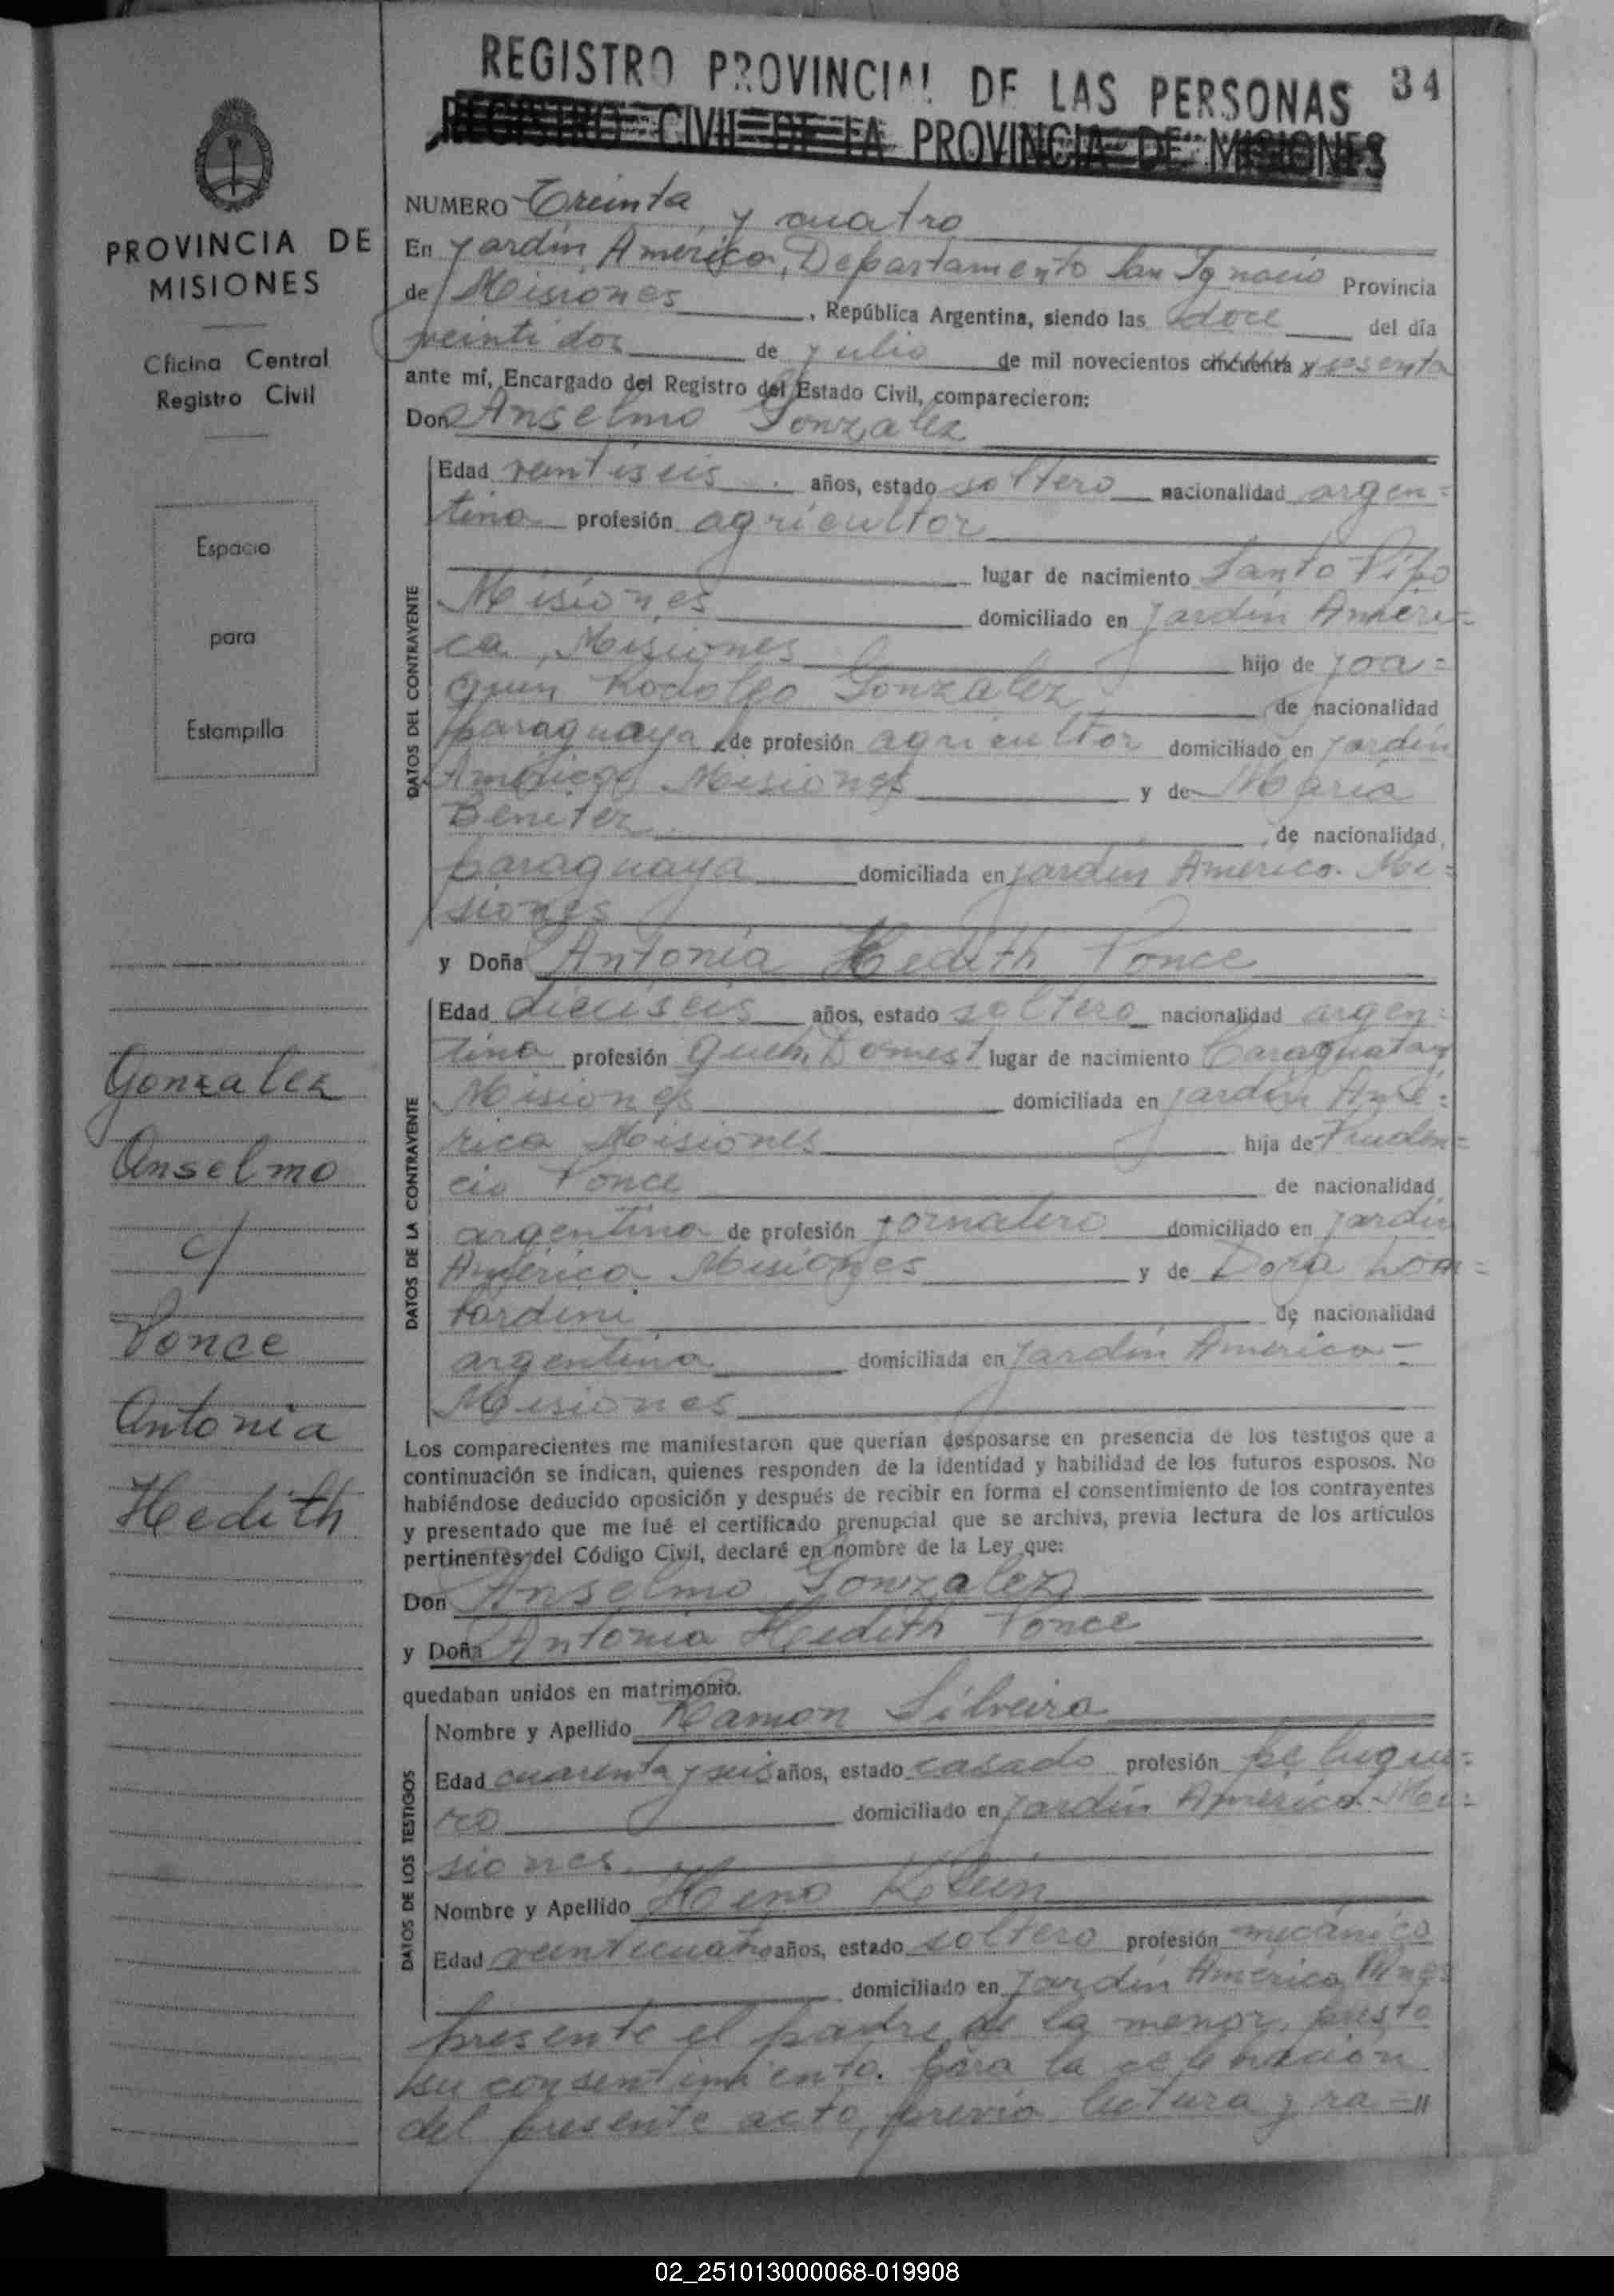 REGISTRO PROVINCIAL DE LAS PERSONAS 34
REGISTRO CIVIL DE LA PROVINCIA DE MISIONES
PROVINCIA DE
MISIONES
Oficina Central
Registro Civil
Espacio
para
Estampilla
Gonzalez
Anselmo
y
Ponce
Antonia
Hedith
NUMERO Treinta y cuatro
En Jardín América, Departamento San Ignacio Provincia
de Misiones, República Argentina, siendo las doce del día
veintidos de julio de mil novecientos cincuenta y sesenta
ante mí, Encargado del Registro del Estado Civil, comparecieron:
Don Anselmo Gonzalez
DATOS DEL CONTRAYENTE
Edad veintiseis años, estado soltero nacionalidad argen=
tina profesión agricultor
lugar de nacimiento Santo Pipo
Misiones domiciliado en Jardín Améri=
ca, Misiones hijo de Joa=
quin Rodolfo Gonzalez de nacionalidad
paraguaya de profesión agricultor domiciliado en Jardín
América Misiones y de María
Benitez de nacionalidad
paraguaya domiciliada en Jardín América. Mi=
siones
y Doña Antonia Hedith Ponce
DATOS DE LA CONTRAYENTE
Edad dieciseis años, estado soltera nacionalidad argen=
tina profesión Queh. Domest lugar de nacimiento Caraguatay
Misiones domiciliada en Jardín Amé=
rica Misiones hija de Pruden=
cio Ponce de nacionalidad
argentina de profesión jornalero domiciliado en Jardín
América Misiones y de Dora Lom=
bardini de nacionalidad
argentina domiciliada en Jardín América-
Misiones
Los comparecientes me manifestaron que querían desposarse en presencia de los testigos que a
continuación se indican, quienes responden de la identidad y habilidad de los futuros esposos. No
habiéndose deducido oposición y después de recibir en forma el consentimiento de los contrayentes
y presentado que me fué el certificado prenupcial que se archiva, previa lectura de los artículos
pertinentes del Código Civil, declaré en nombre de la Ley que:
Don Anselmo Gonzalez
y Doña Antonia Hedith Ponce
quedaban unidos en matrimonio.
DATOS DE LOS TESTIGOS
Nombre y Apellido Ramon Silveira
Edad cuarenta y seis años, estado casado profesión peluque=
ro domiciliado en Jardín América. Mi=
siones.
Nombre y Apellido Heno Klein
Edad veinticuatro años, estado soltero profesión mecánico
domiciliado en Jardín América,
presente el padre de la menor, presto
su consentimiento. para la celebración
del presente acto, previa lectura y ra=//
02_251013000068-019908